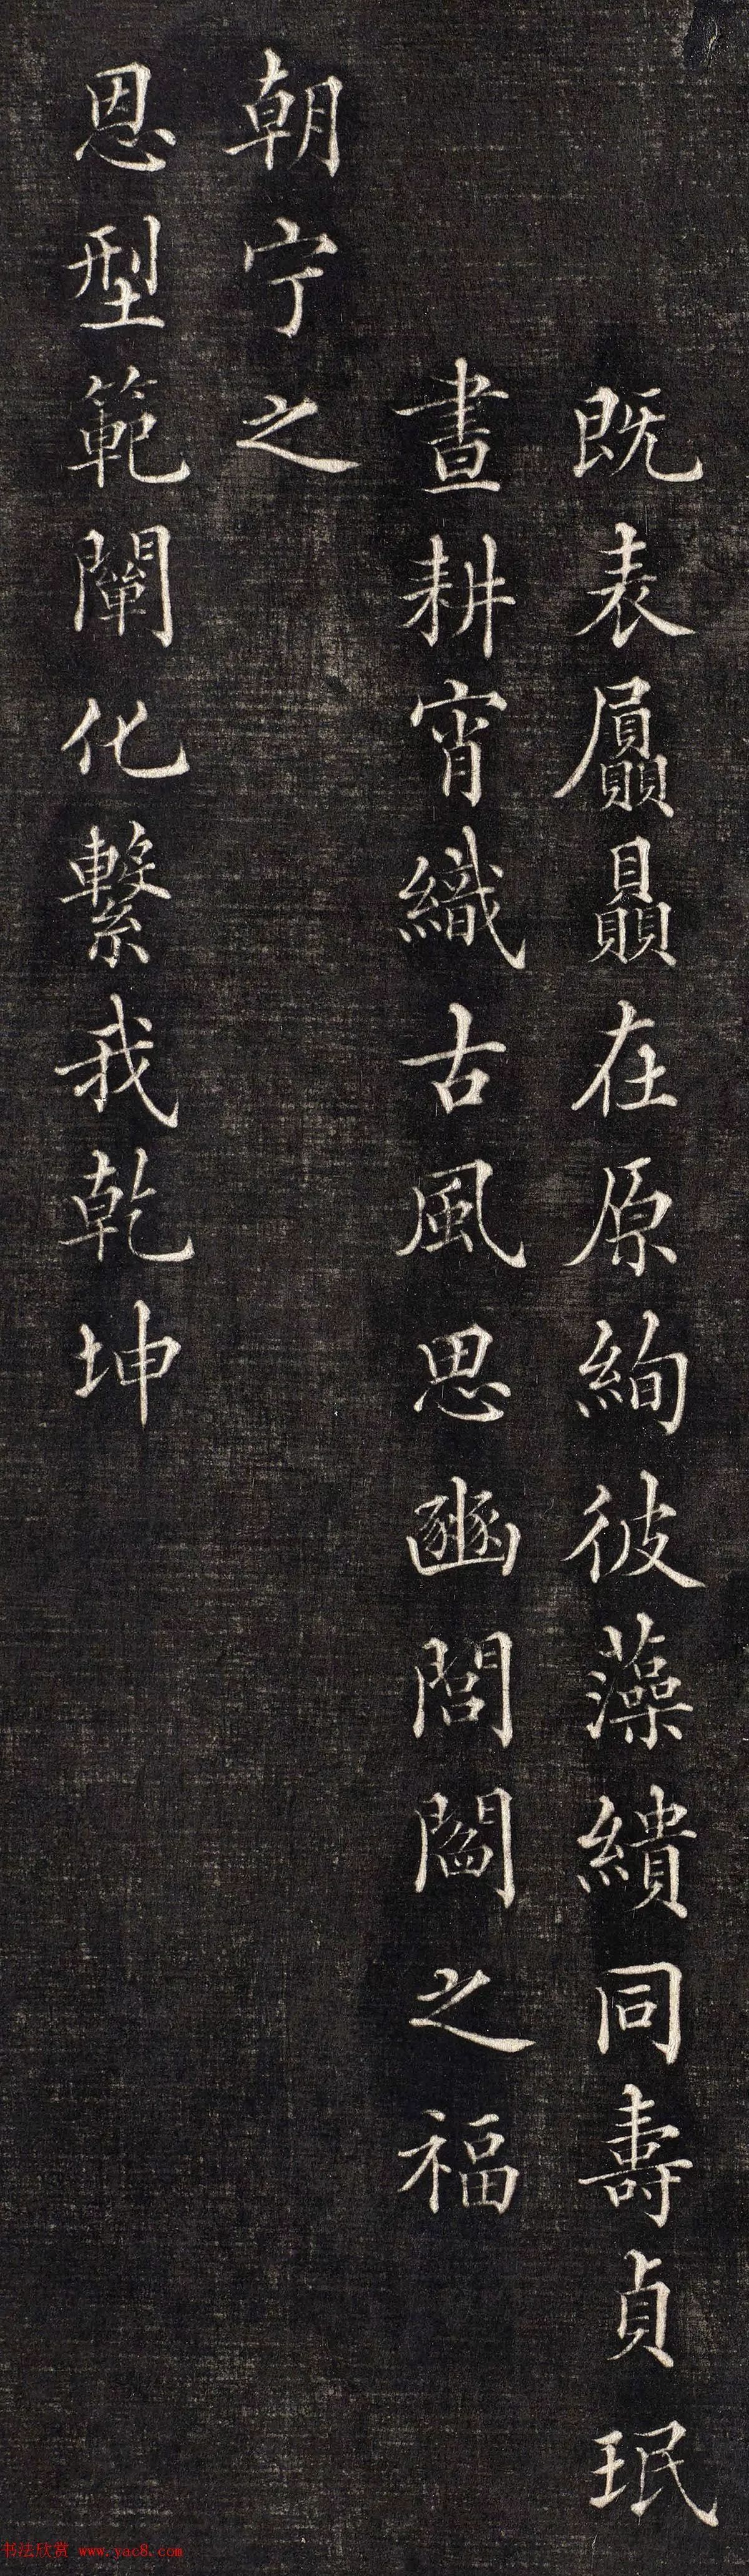 既表贔贔在原絢彼藻繢同壽貞珉
晝耕宵織古風思豳閻閻之福
朝宁之
恩型範闡化繫我乾坤
书法欣赏 www.yac8.com